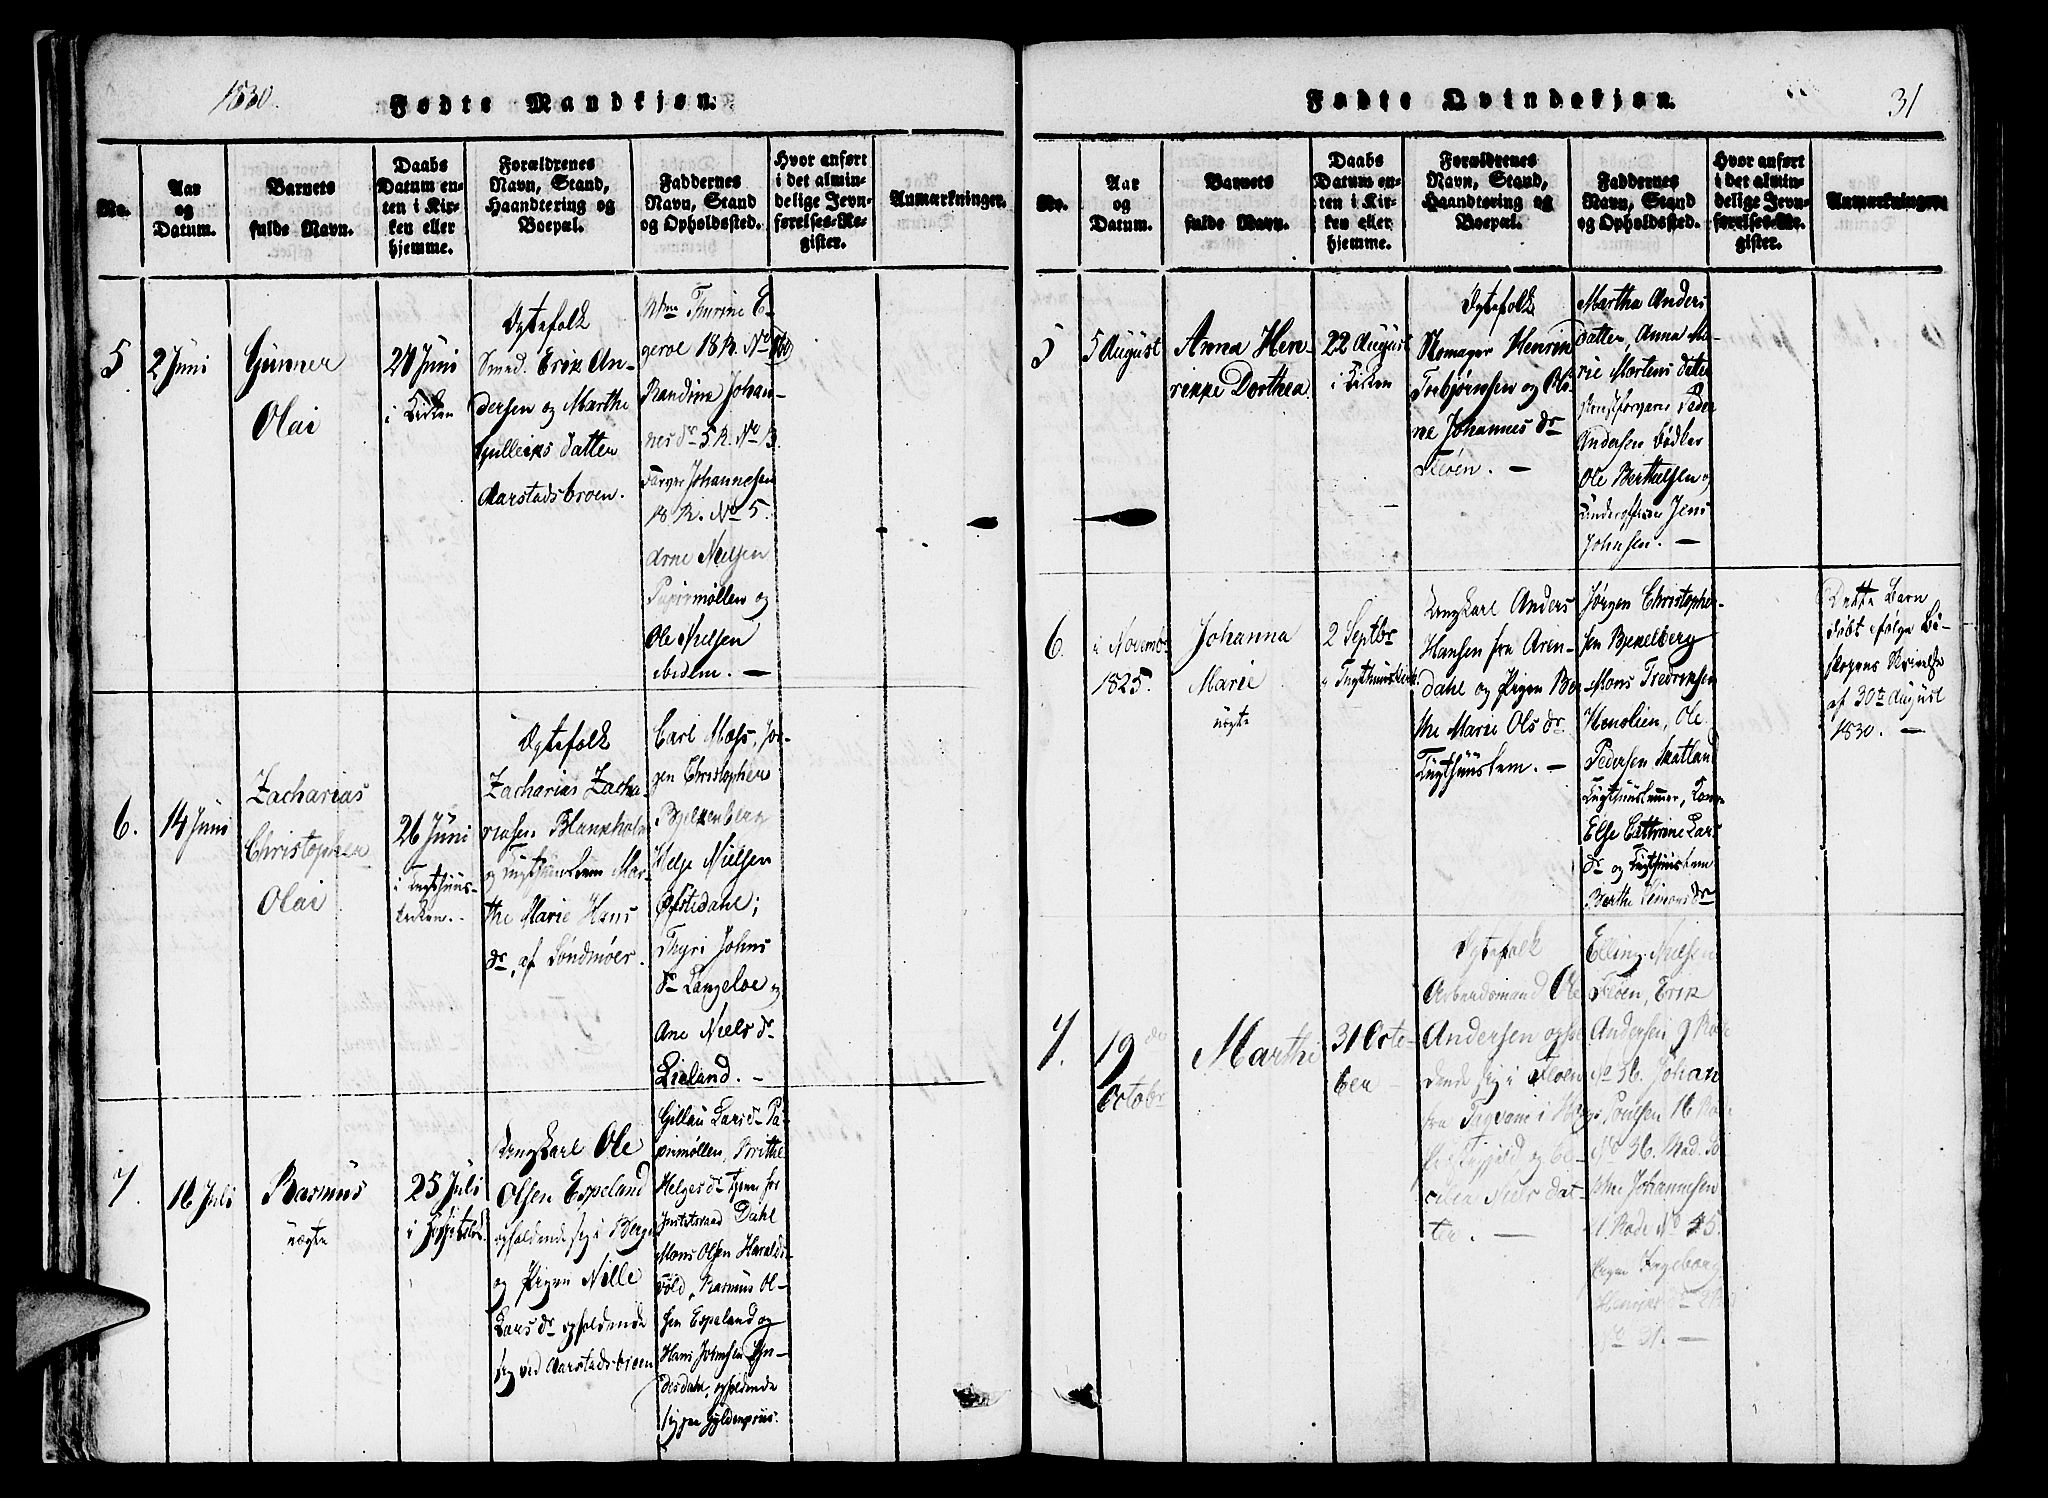 1830.
Fødte Mandkjøn.
No.
Aar og Datum.
Barnets fulde Navn.
Daabs Datum enten i Kirken eller hjemme.
Forældrenes Navn, Stand, Haandtering og Boepæl.
Faddernes Navn, Stand og Opholdssted.
Hvor anført i det almindelige Jevnførelses-Register.
Anmærkninger.
5
2 Juni
Gunner
Olai
20 Juni
i Kirken
Ægtefolk
Smed. Erik An-
dersen og Marthe
Gulleiks Datter
Aarstadsbroen.
Thurine E-
geroe 18 R. No
Randina Johan-
nes dr 5 R. No 13.
Farver Johannesen
18 R. No 5.
Arne Nielsen
Papirmøllen og
Ole Nielsen
ibidem. —
6.
14 Juni
Zacharias
Christopher
Olai
26 Juni
i Tugthuus-
kirken.
Ægtefolk
Zacharias Zacha-
riasen Blankholm
og Tugthuuslem Mar-
the Marie Hans
dr, af Søndmøer.
Carl Moss, Jør-
gen Christopher
Bjelkenberg
Helje Nielsen
Øfstedahl;
Thyri Johns
dr Langeloe og
Ane Niels dr
Lieland. —
7.
16 Juli
Rasmus
uægte
25 Juli
i
Ungkarl Ole
Olsen Espeland
opholdende sig i Bergen
og Pigen Nille
Lars dr opholdende
sig ved Aarstadsbroen
Lars dr Pa-
pirmøllen, Brithe
Helges dr
Dahl
Mons Olsen Haralds-
vold, Rasmus Ol-
sen Espeland og
Hans
opholdende
31
Fødte Qvindekjøn.
No.
Aar og Datum.
Barnets fulde Navn.
Daabs Datum enten i Kirken eller hjemme.
Forældrenes Navn, Stand, Haandtering og Boepæl.
Faddernes Navn, Stand og Opholdssted.
Hvor anført i det almindelige Jevnførelses-Register.
Anmærkninger.
5
5 August
Anna Hen-
rikke Dorthea
22 August
i Kirken
Ægtefolk
Skomager Henrik
Torbjørnsen og
Johannes dr
Fløen. —
Martha Anders
datter, Anna Ma-
rie Mortens datter
Peder
Andersen Bødker
Ole Berthelsen og
Underofficer Jens
Johnsen. —
6.
i Novembr
1825.
Johanna
Marie
uægte
2 Septbr
i Tugthuuskirken
Ungkarl Anders
Hansen fra Aren-
dahl og Pigen Ber-
the Marie Ols dr
Tugthuuslem. —
Jørgen Christopher-
sen Bjekelberg
Mons Fredriksen
Ole
Pedersen Skatland
Tugthuuslemmer,
Else Cathrine Lars
dr og Tugthuuslem
Berthe Simons dr
Dette Barn
døbt ifølge Bi-
skopens Skrivelse
af 30te August
1830. —
7.
19 de
Octobr
Marthe
31 Octo-
ber
Ægtefolk
Arbeidsmand Ole
Andersen ophol-
dende sig i Fløen
fra
og Ce-
cilia Niels Dat-
ter. —
Elling Nielsen
Fløen, Erik
Andersen 9 Rode
No 36. Johan
Poulsen 16 Rode
No 36. Mad. So-
phie Johannesen
1 Rode No 45.
Pigen Ingeborg
No 31. —